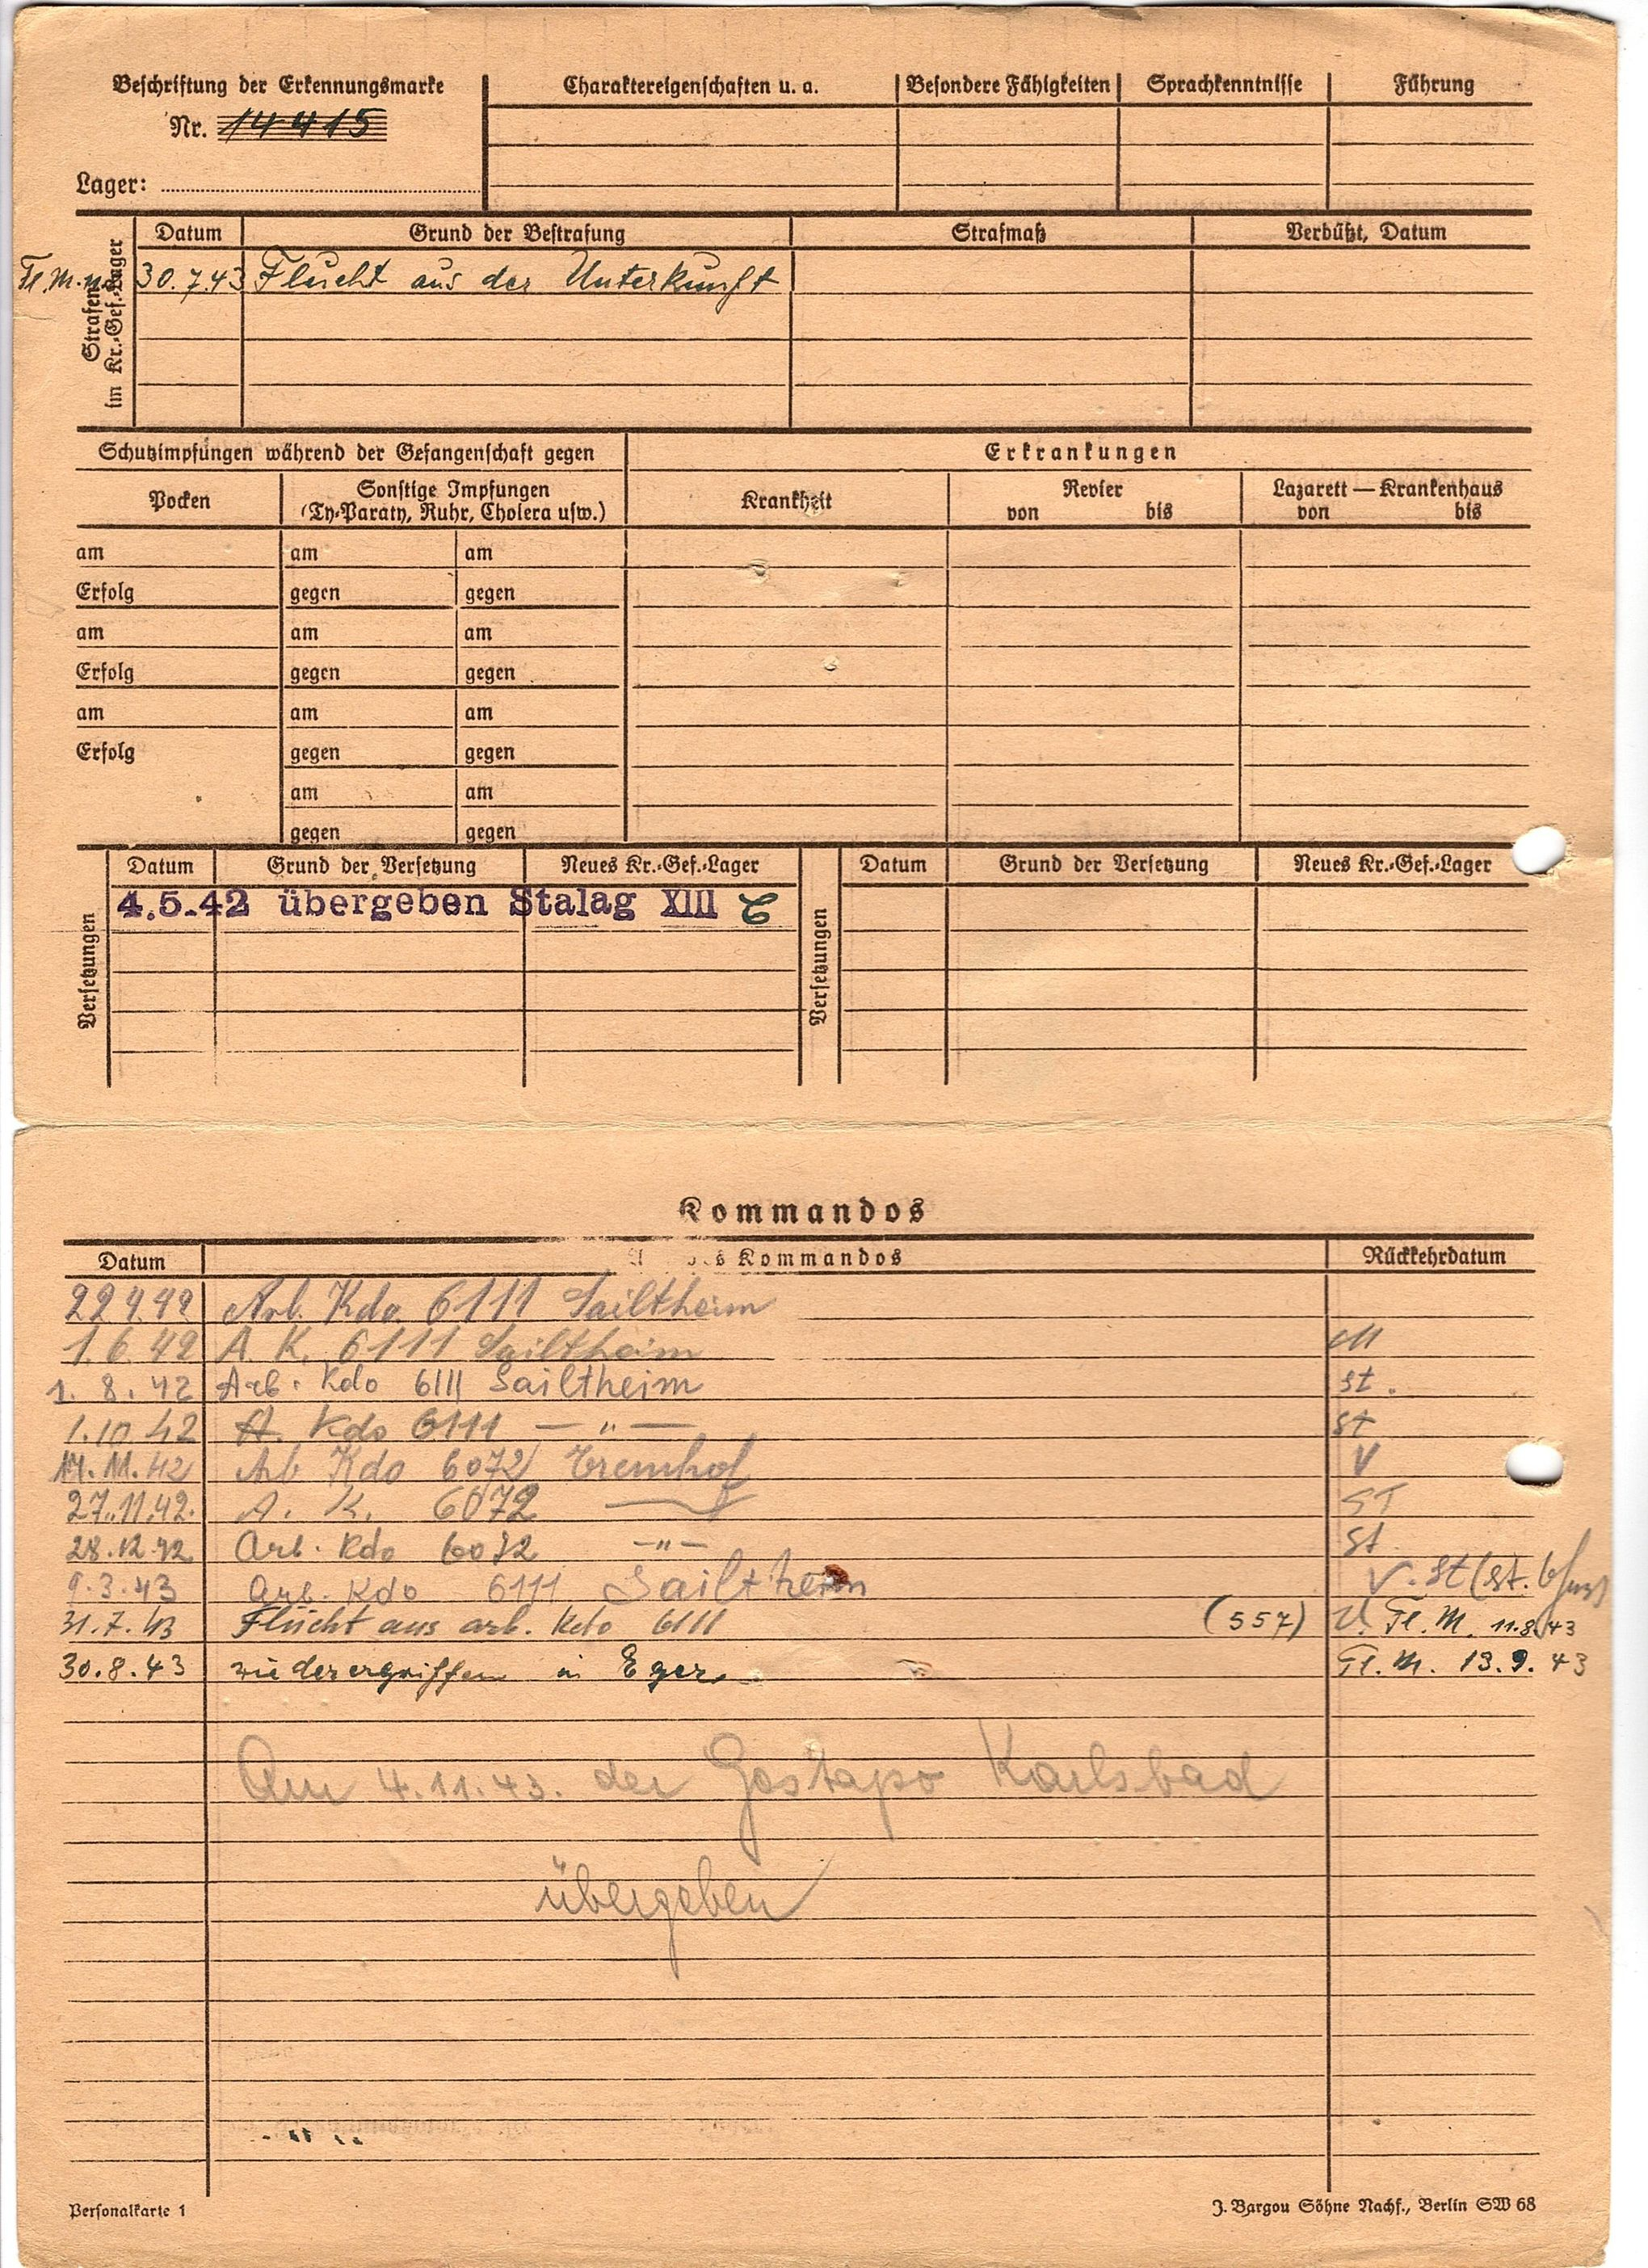 Beschriftung der Erkennungsmarke
Nr. 14415
Lager:
Charaktereigenschaften u. a.
Besondere Fähigkeiten
Sprachkenntnisse
Führung
Strafen im Kr.-Gef.-Lager
Datum Grund der Bestrafung Strafmaß Verbüßt, Datum
Fl. M. 30.7.43 Flucht aus der Unterkunft
Schutzimpfungen während der Gefangenschaft gegen
Erkrankungen
Pocken
Sonstige Impfungen
(Ty-Paraty, Ruhr, Cholera usw.)
Krankheit
Revier
von bis
Lazarett — Krankenhaus
von bis
am am am
Erfolg gegen gegen
am am am
Erfolg gegen gegen
am am am
Erfolg gegen gegen
am am
gegen gegen
Versetzungen
Datum Grund der Versetzung Neues Kr.-Gef.-Lager
4.5.42 übergeben Stalag XIII C
Versetzungen
Datum Grund der Versetzung Neues Kr.-Gef.-Lager
Kommandos
Datum Kommandos Rückkehrdatum
Arb. Kdo. 6111 Sailtheim
1.6.42 A. K. 6111 Sailtheim
1. 8. 42 Arb. Kdo 6111 Sailtheim st.
1.10.42 A. Kdo 6111 — " — st
17.11.42 Arb Kdo 6072 V
27.11.42. A. K. 6072 ST
28.12.42 Arb. Kdo 6072 — " — St.
9.3.43 Arb. Kdo 6111 Sailtheim V. St (st.
31.7.43 Flucht aus arb. Kdo 6111 (557) V. Fl. M. 11.8.43
30.8.43 wiederergriffen in Eger. Fl. M. 13.9.43
Am 4.11.43. der Gestapo Karlsbad
übergeben
Personalkarte 1
J. Bargou Söhne Nachf., Berlin SW 68